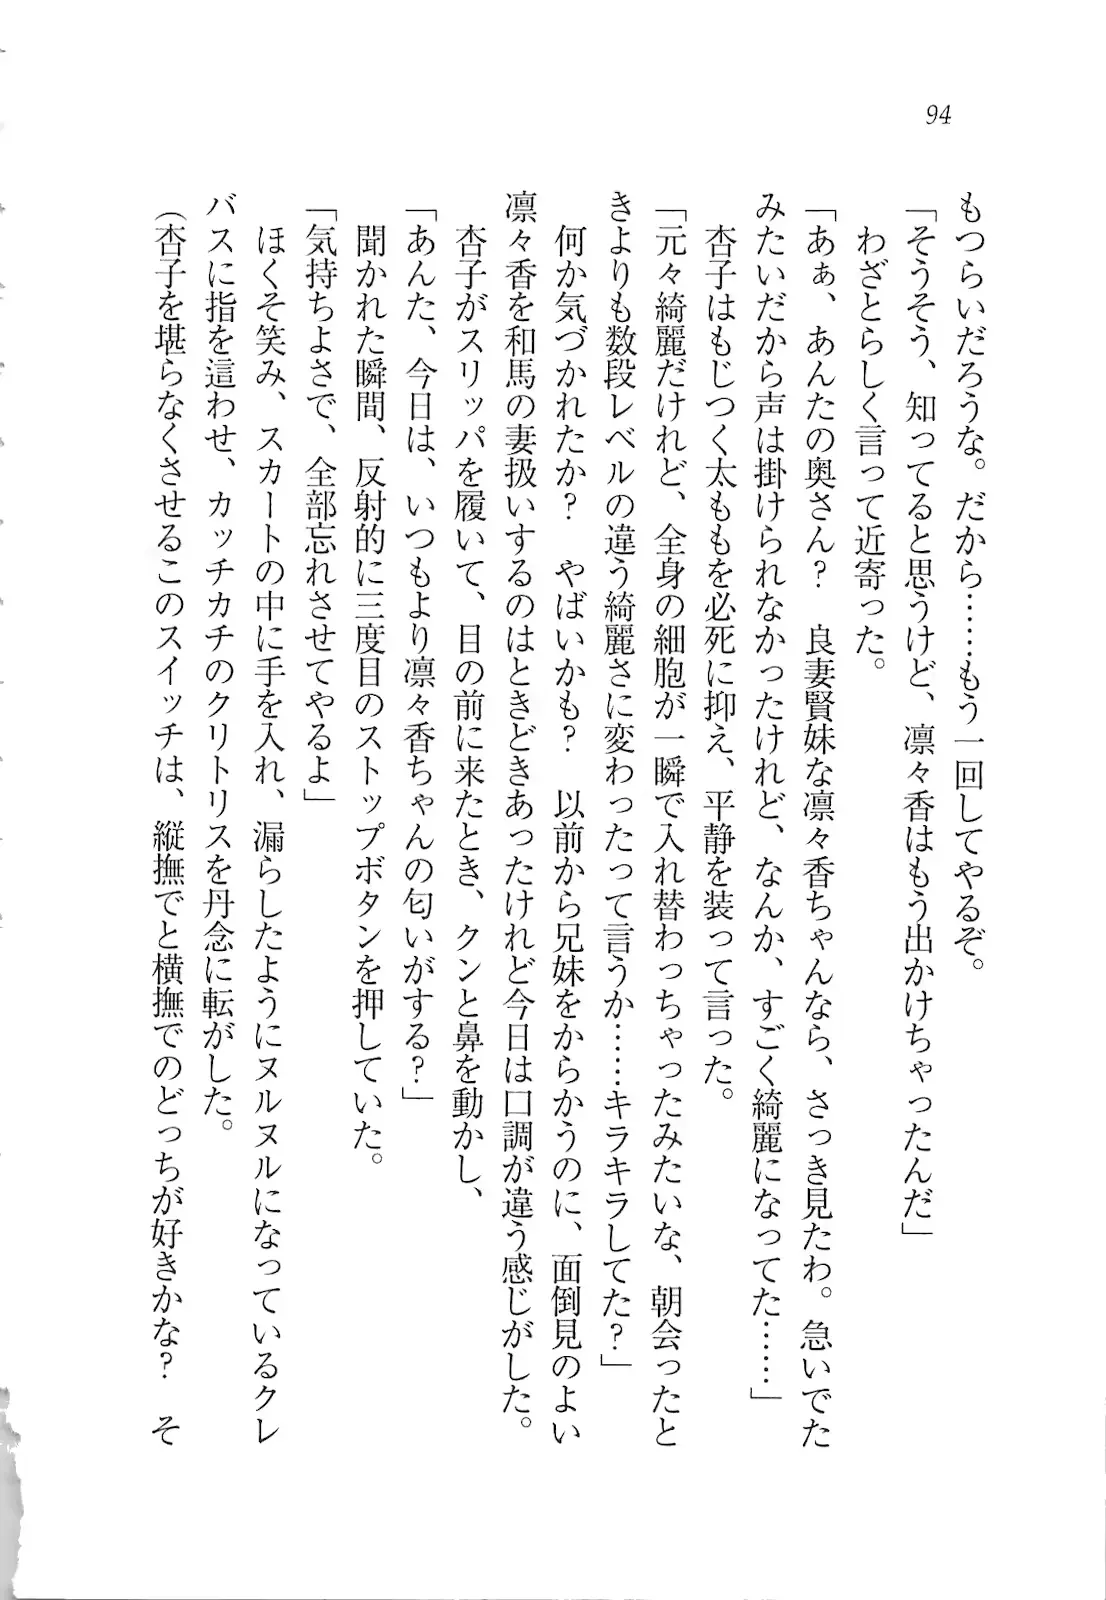 94
もつらいだろうな。だから……もう一回してやるぞ。
「そうそう、知ってると思うけど、凛々香はもう出かけちゃったんだ」
わざとらしく言って近寄った。
「あぁ、あんたの奥さん?　良妻賢妹な凛々香ちゃんなら、さっき見たわ。急いでた
みたいだから声は掛けられなかったけれど、なんか、すごく綺麗になってた……」
杏子はもじつく太ももを必死に抑え、平静を装って言った。
「元々綺麗だけれど、全身の細胞が一瞬で入れ替わっちゃったみたいな、朝会ったと
きよりも数段レベルの違う綺麗さに変わったって言うか……キラキラしてた?」
何か気づかれたか?　やばいかも?　以前から兄妹をからかうのに、面倒見のよい
凛々香を和馬の妻扱いするのはときどきあったけれど今日は口調が違う感じがした。
杏子がスリッパを履いて、目の前に来たとき、クンと鼻を動かし、
「あんた、今日は、いつもより凛々香ちゃんの匂いがする?」
聞かれた瞬間、反射的に三度目のストップボタンを押していた。
「気持ちよさで、全部忘れさせてやるよ」
ほくそ笑み、スカートの中に手を入れ、漏らしたようにヌルヌルになっているクレ
バスに指を這わせ、カッチカチのクリトリスを丹念に転がした。
(杏子を堪らなくさせるこのスイッチは、縦撫でと横撫でのどっちが好きかな?　そ